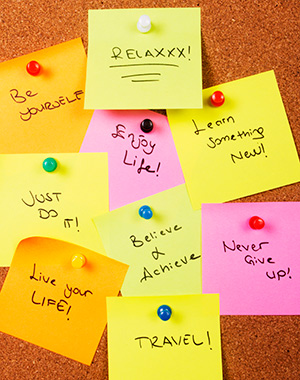 RELAXXX!
Be
yourself
Enjoy
Life!
Learn
Something
New!
JUST
DO
IT!
Believe
&
Achieve
Never
Give
up!
Live your
LIFE!
TRAVEL!